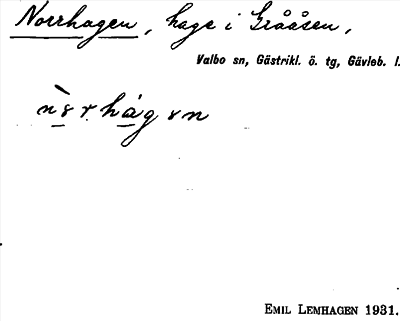 Norrhagen, hage i Grååsen,
Valbo sn, Gästrikl. ö. tg, Gävleb. l.
EMIL LEMHAGEN 1931.